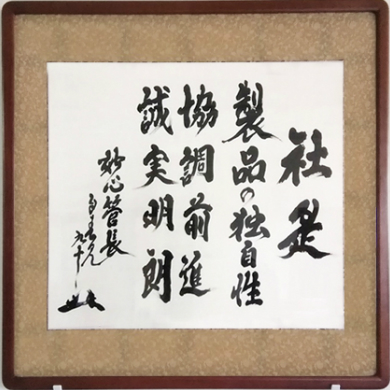 社是
製品の独自性
協調前進
誠実明朗
妙心管長